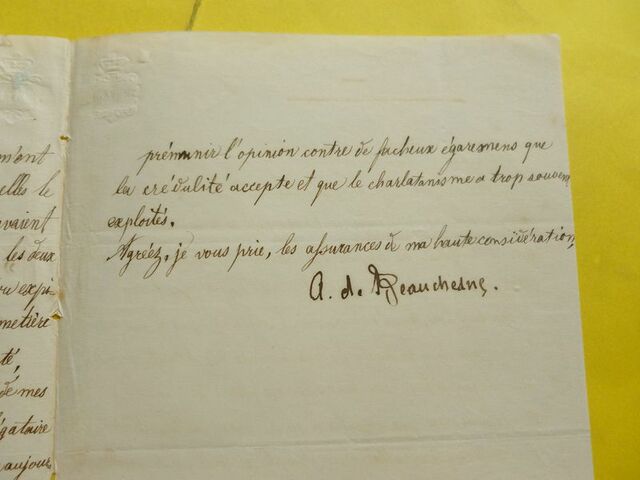 m'ont
elles le
avaient
les deux
ou expi-
metière
té,
de mes
égataire
aujour
prémunir l'opinion contre de facheux égaremens que
la crédulité accepte et que le charlatanisme a trop souvent
exploités.
Agréez, je vous prie, les assurances de ma haute considération,
A. de Beauchesne.